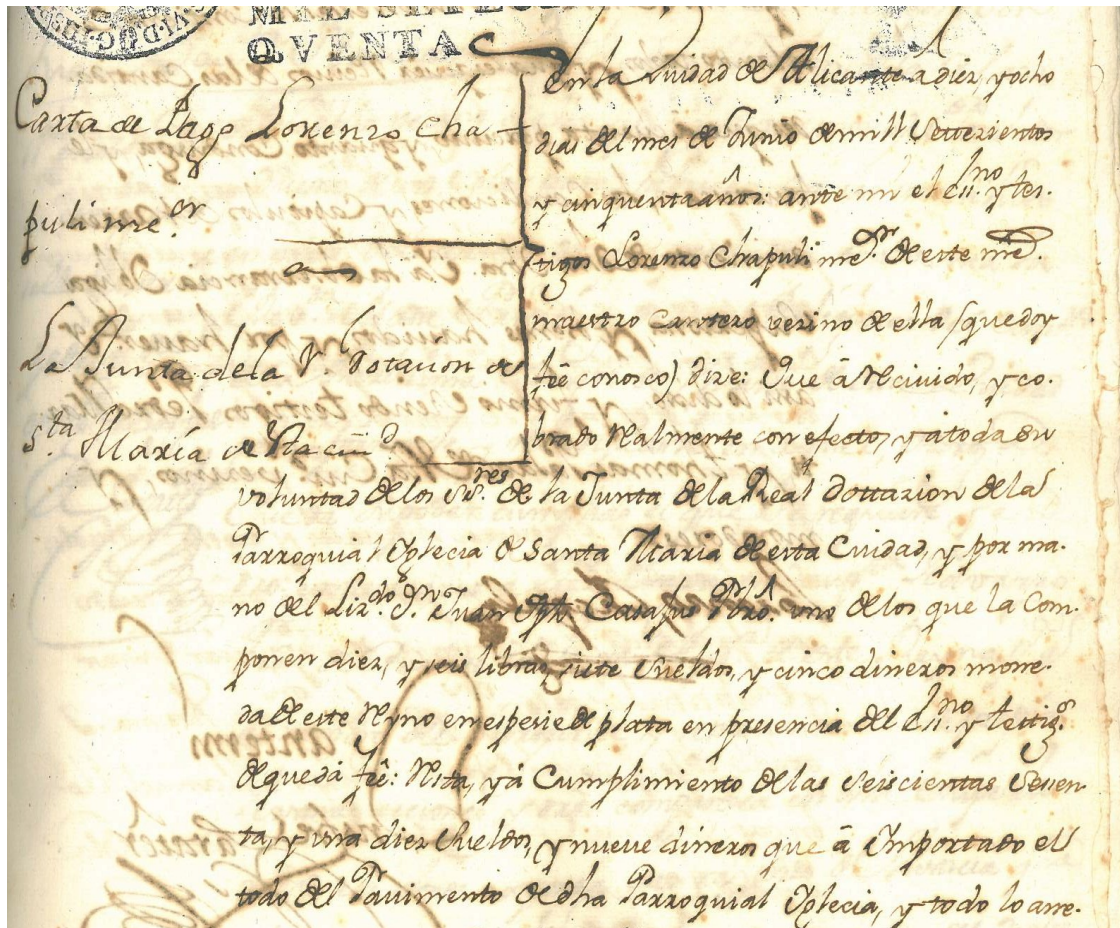 MIL SETEC
QVENTA
Carta de Pago Lorenzo Cha-
puli me.or
La Junta de la Rl. Dotacion de
Sta. Maria de sta ciud
En la Ciudad de Alicante a diez, y ocho
dias del mes de Junio de mill Settezientos
y cinquenta años: ante mi el Essno. y tes-
tigos Lorenzo Chapuli me.or de este
maestro cantero vezino de ella (que doy
feê conosco) dize: Que â Recivido, y co-
brado Realmente con efecto, y a toda su
voluntad de los Sres. de la Junta de la Real Dottazion de la
Parroquial Yglecia de Santa Maria de esta Ciudad, y por ma-
no del Lizdo. Dn. Juan Bpta. Casafus Pbro. uno de los que la Com-
ponen diez, y seis libras, siete Sueldos, y cinco dineros mone-
da de este Reyno en espesie de plata en presencia del Essno. y testigos.
de que dá feê: Resta, y â Cumplimiento de las Seiscientas Sesen-
ta, y una diez Sueldos, y nueve dineros que â Importado el
todo del Pavimento de dha Parroquial Yglecia, y todo lo arre-